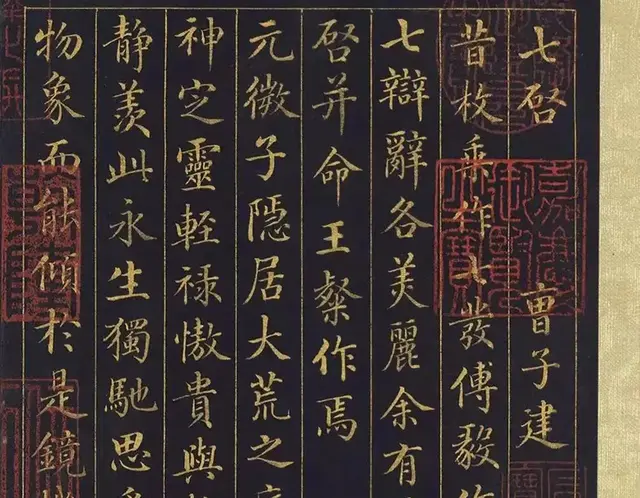 七啓 曹子建
昔枚乗作七發傅毅
七辯辭各美麗余有
啓并命王粲作焉
元微子隱居大荒之
神定靈軽禄傲貴與
静羨此永生獨馳思
物象而能傾於是鏡